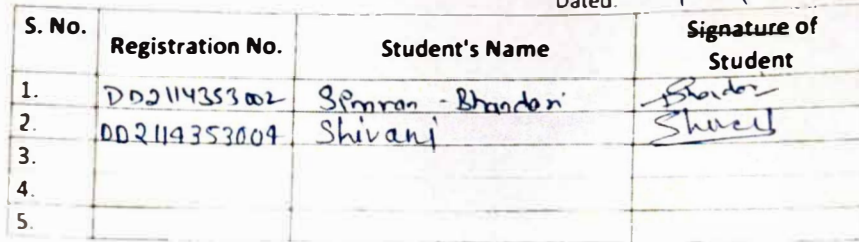 Dated:
S. No. Registration No. Student's Name Signature of Student
1. DD2114353002 Simran - Bhandari
2. DD2114353004 Shivani
3.
4.
5.